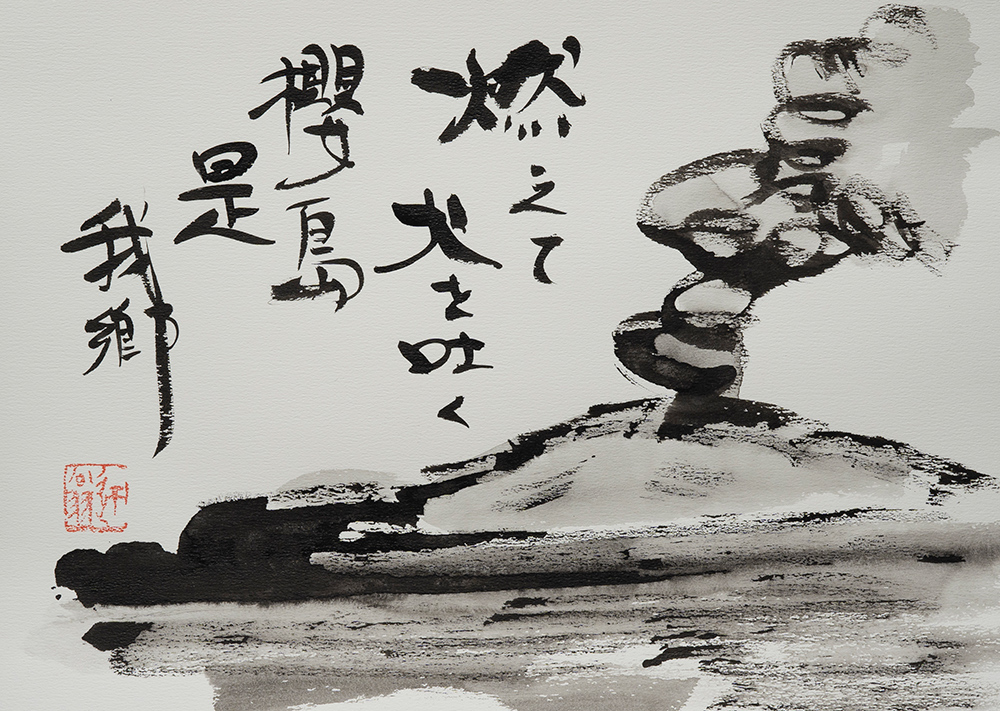 燃えて
火を吐く
櫻島
是
我郷